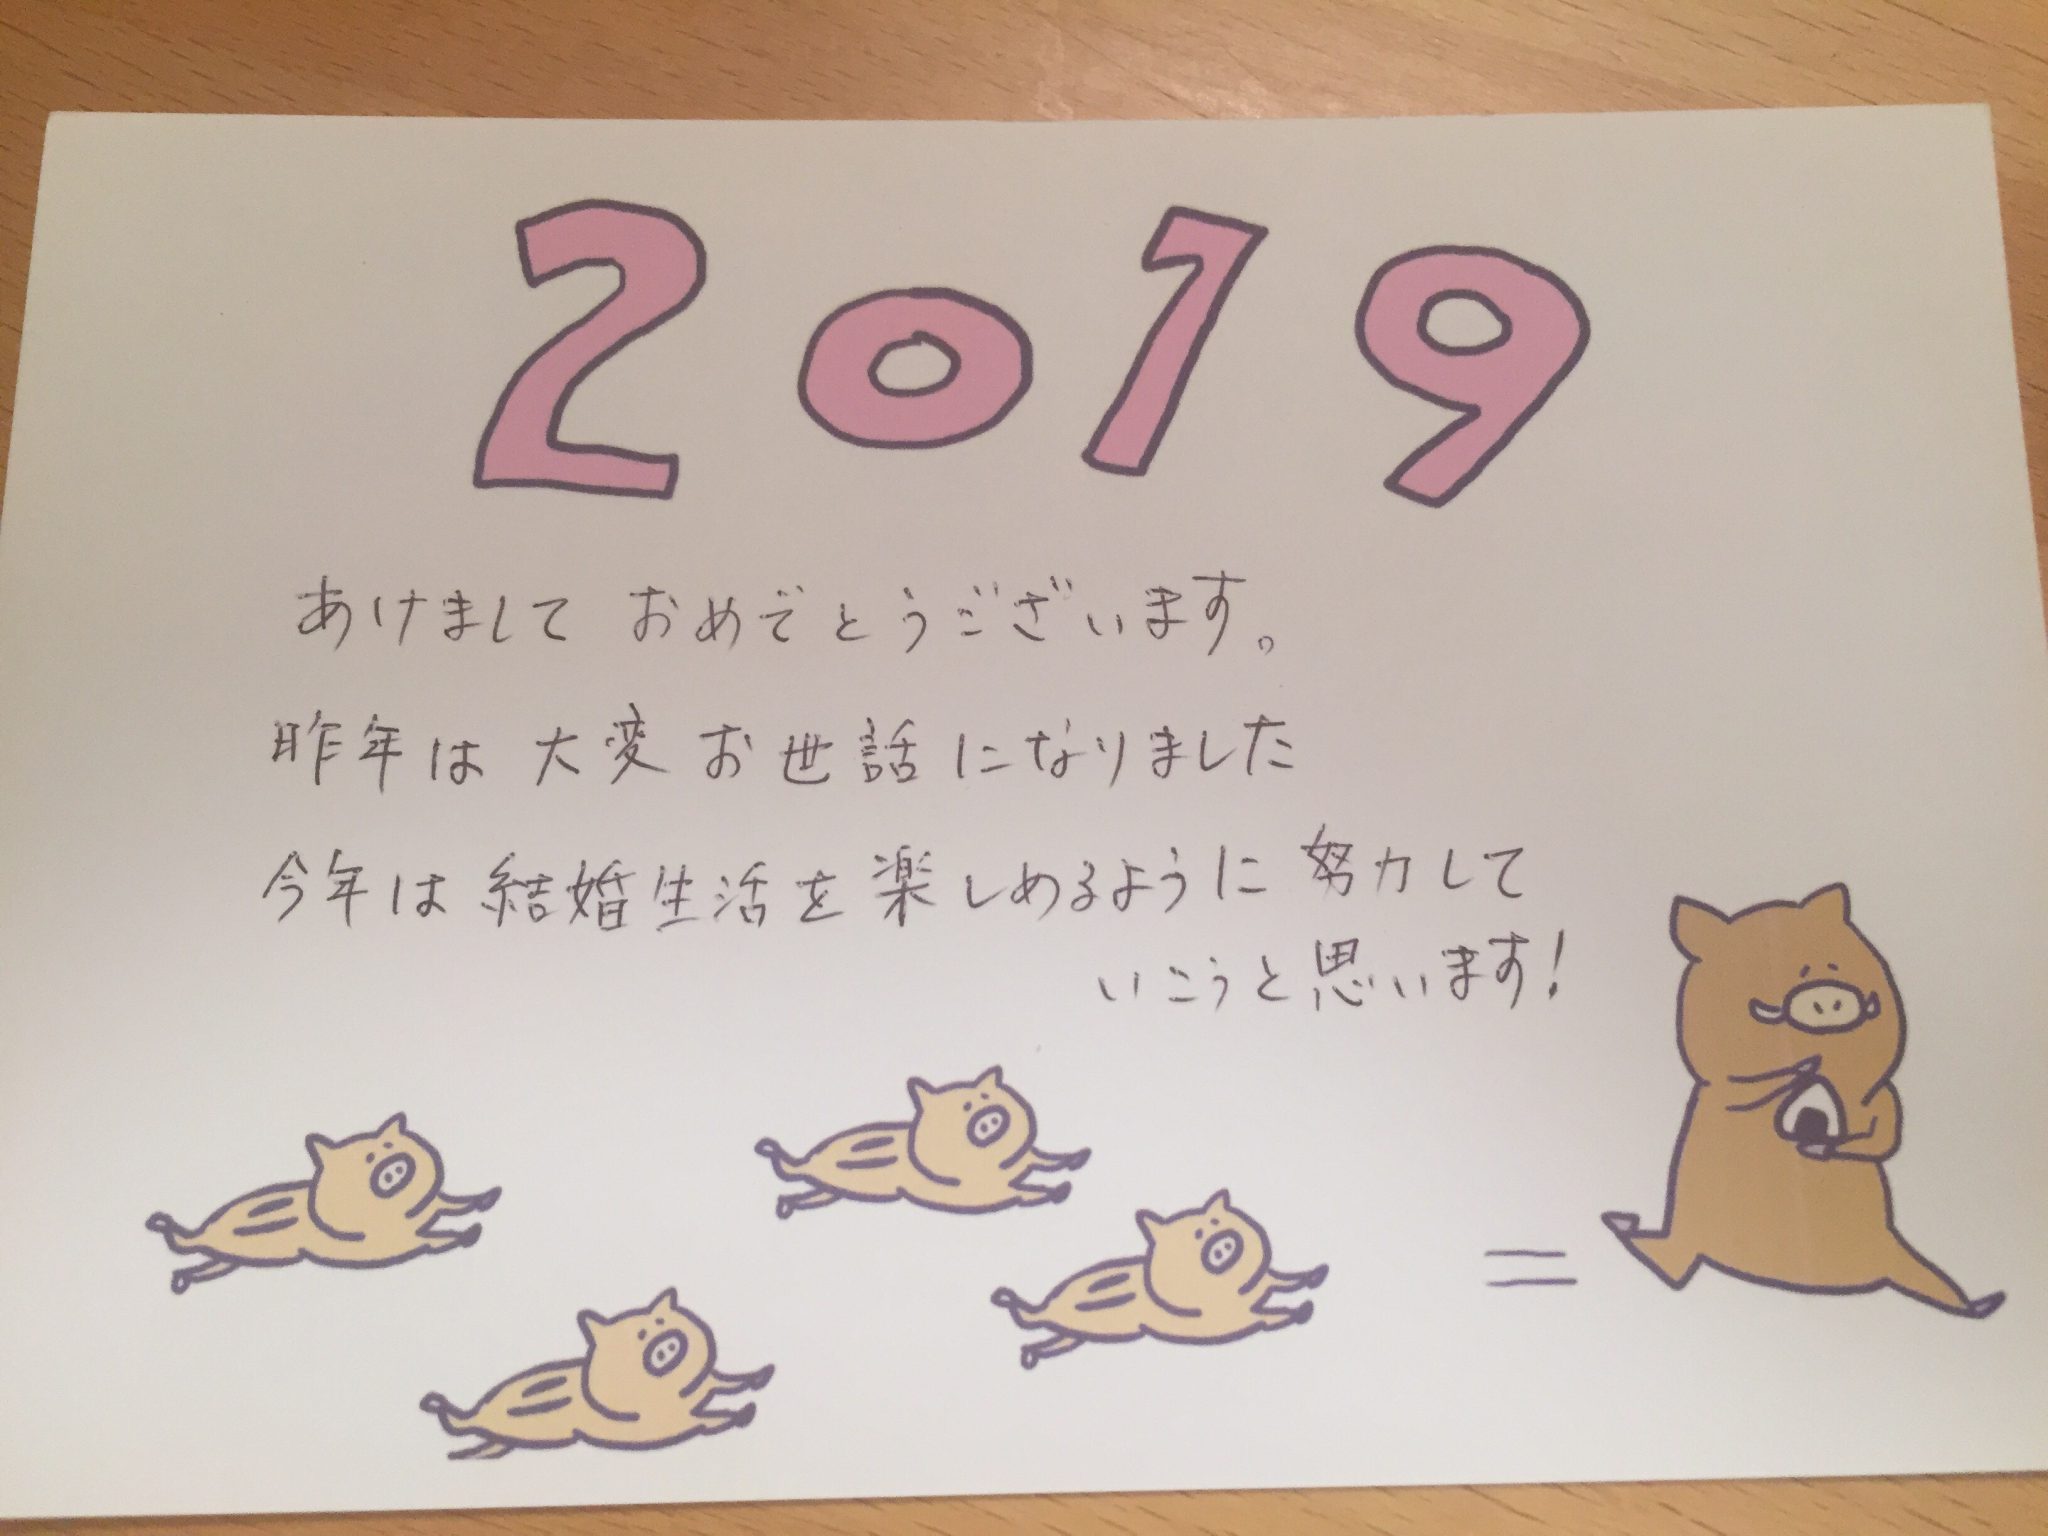 2019
あけまして おめでとうございます。
昨年は 大変 お世話になりました
今年は 結婚生活を楽しめるように 努力して
いこうと思います!